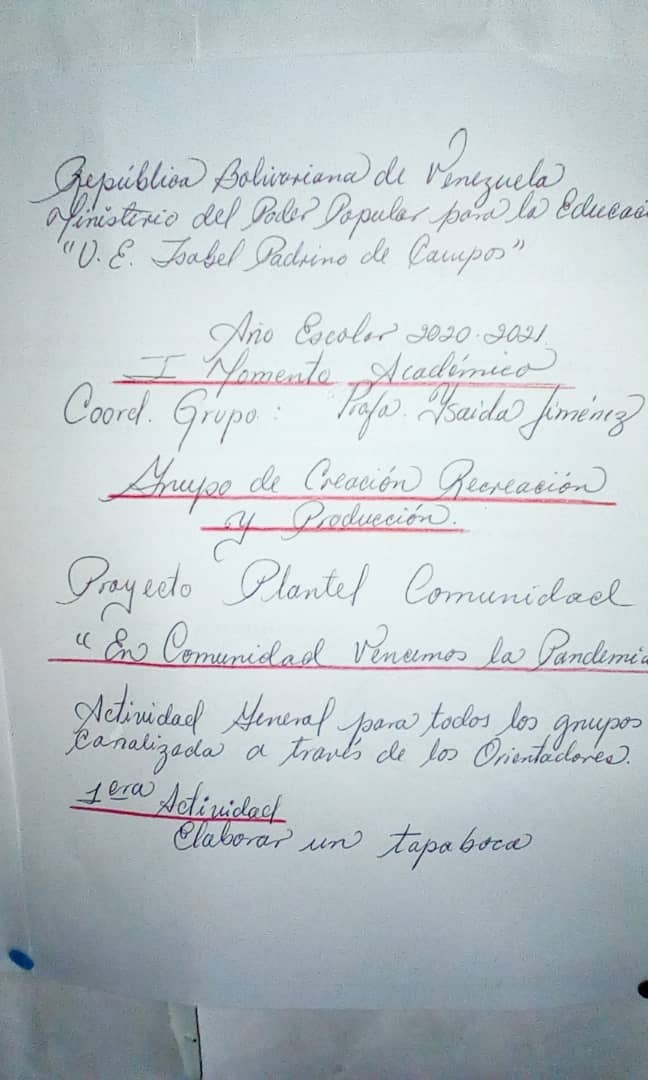 República Bolivariana de Venezuela
Ministerio del Poder Popular para la Educaci
"U.E. Isabel Padrino de Campos"
Año Escolar 2020-2021
I Momento Académico
Coord. Grupo: Profa. Ysaida Jiménez
Grupo de Creación Recreación
y Producción.
Proyecto Plantel Comunidad
"En Comunidad Vencemos la Pandemia
Actividad General para todos los grupos
canalizada a través de los Orientadores.
1era Actividad
Elaborar un tapaboca